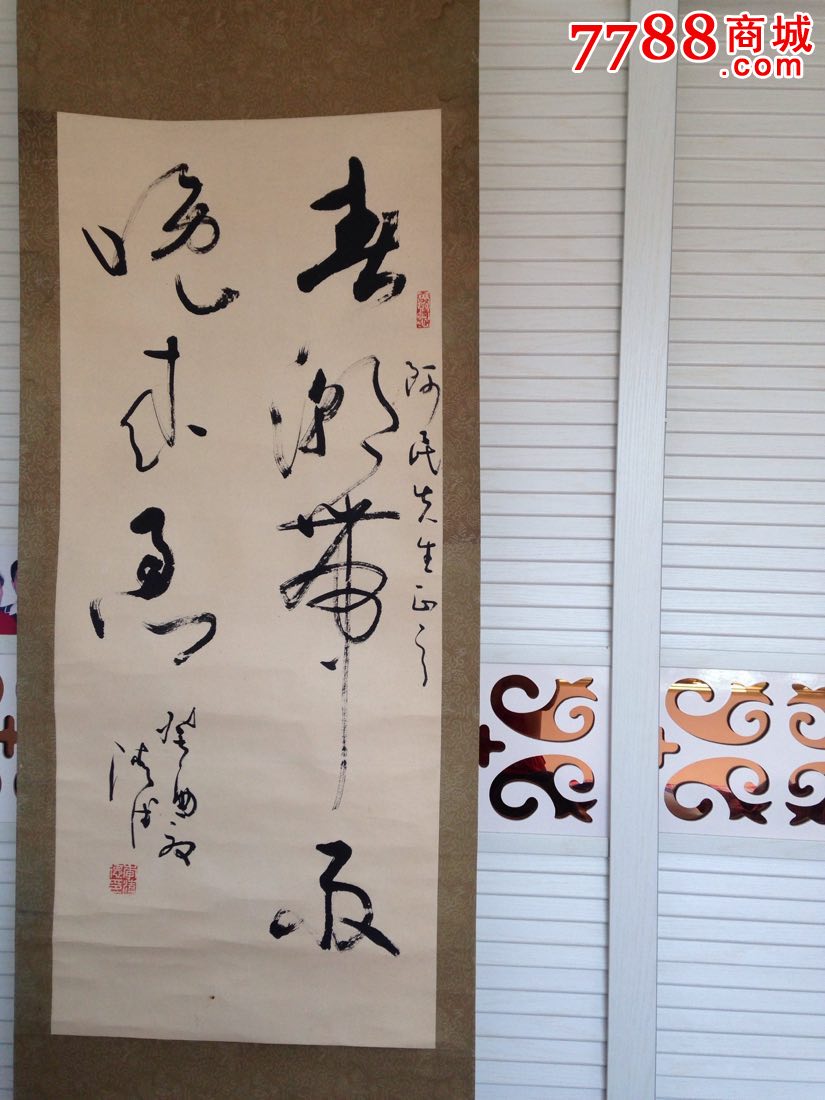 7788商城
.com
阿民先生正之
春潮帶雨
晚来急
癸酉